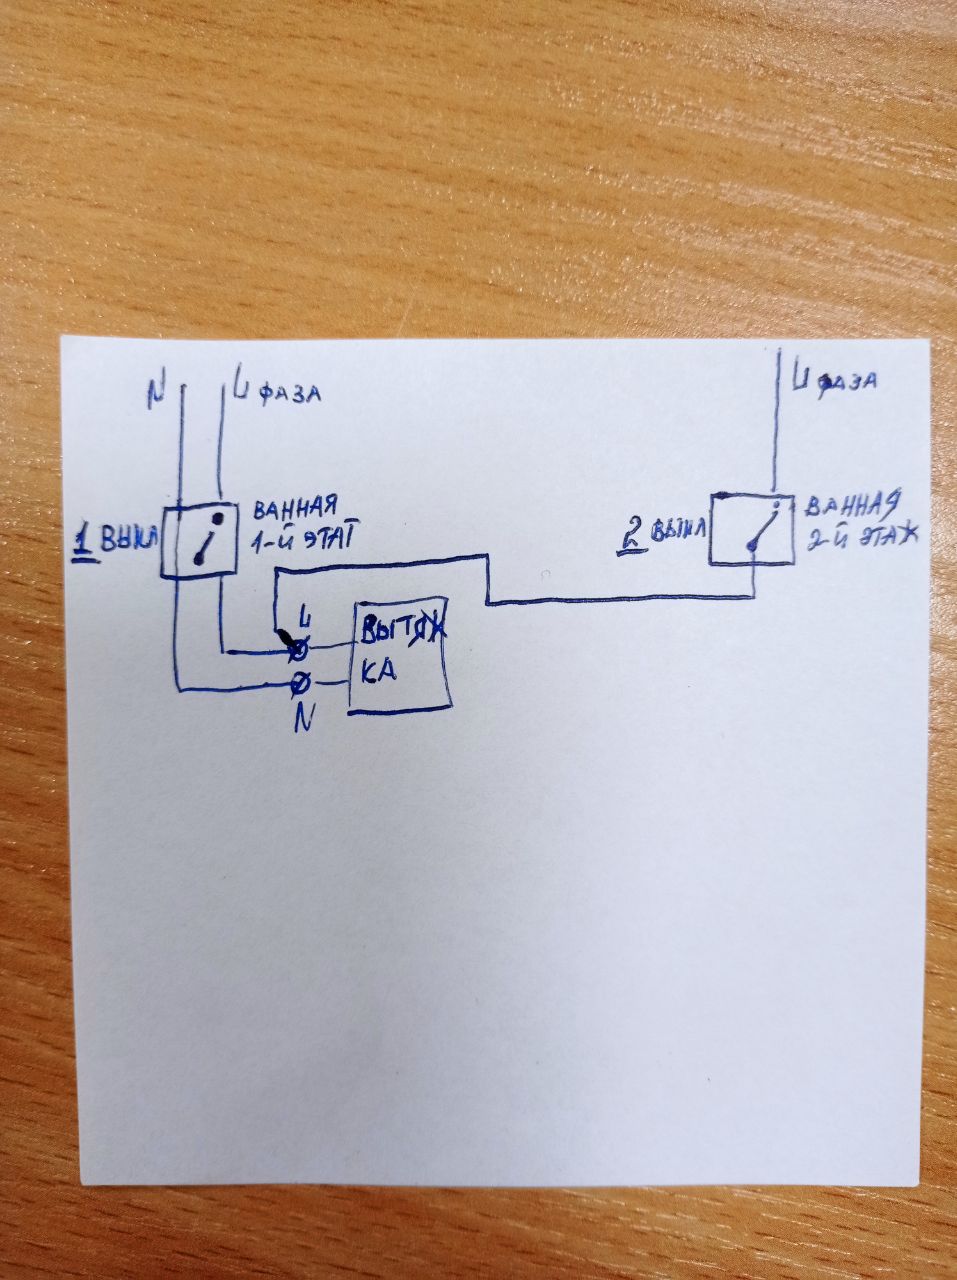 N
L ФАЗА
L ФАЗА
1 ВЫКЛ
ВАННАЯ
1-Й ЭТАТ
2 ВЫКЛ
ВАННАЯ
2-Й ЭТАЖ
L
ВЫТЯЖ
КА
N